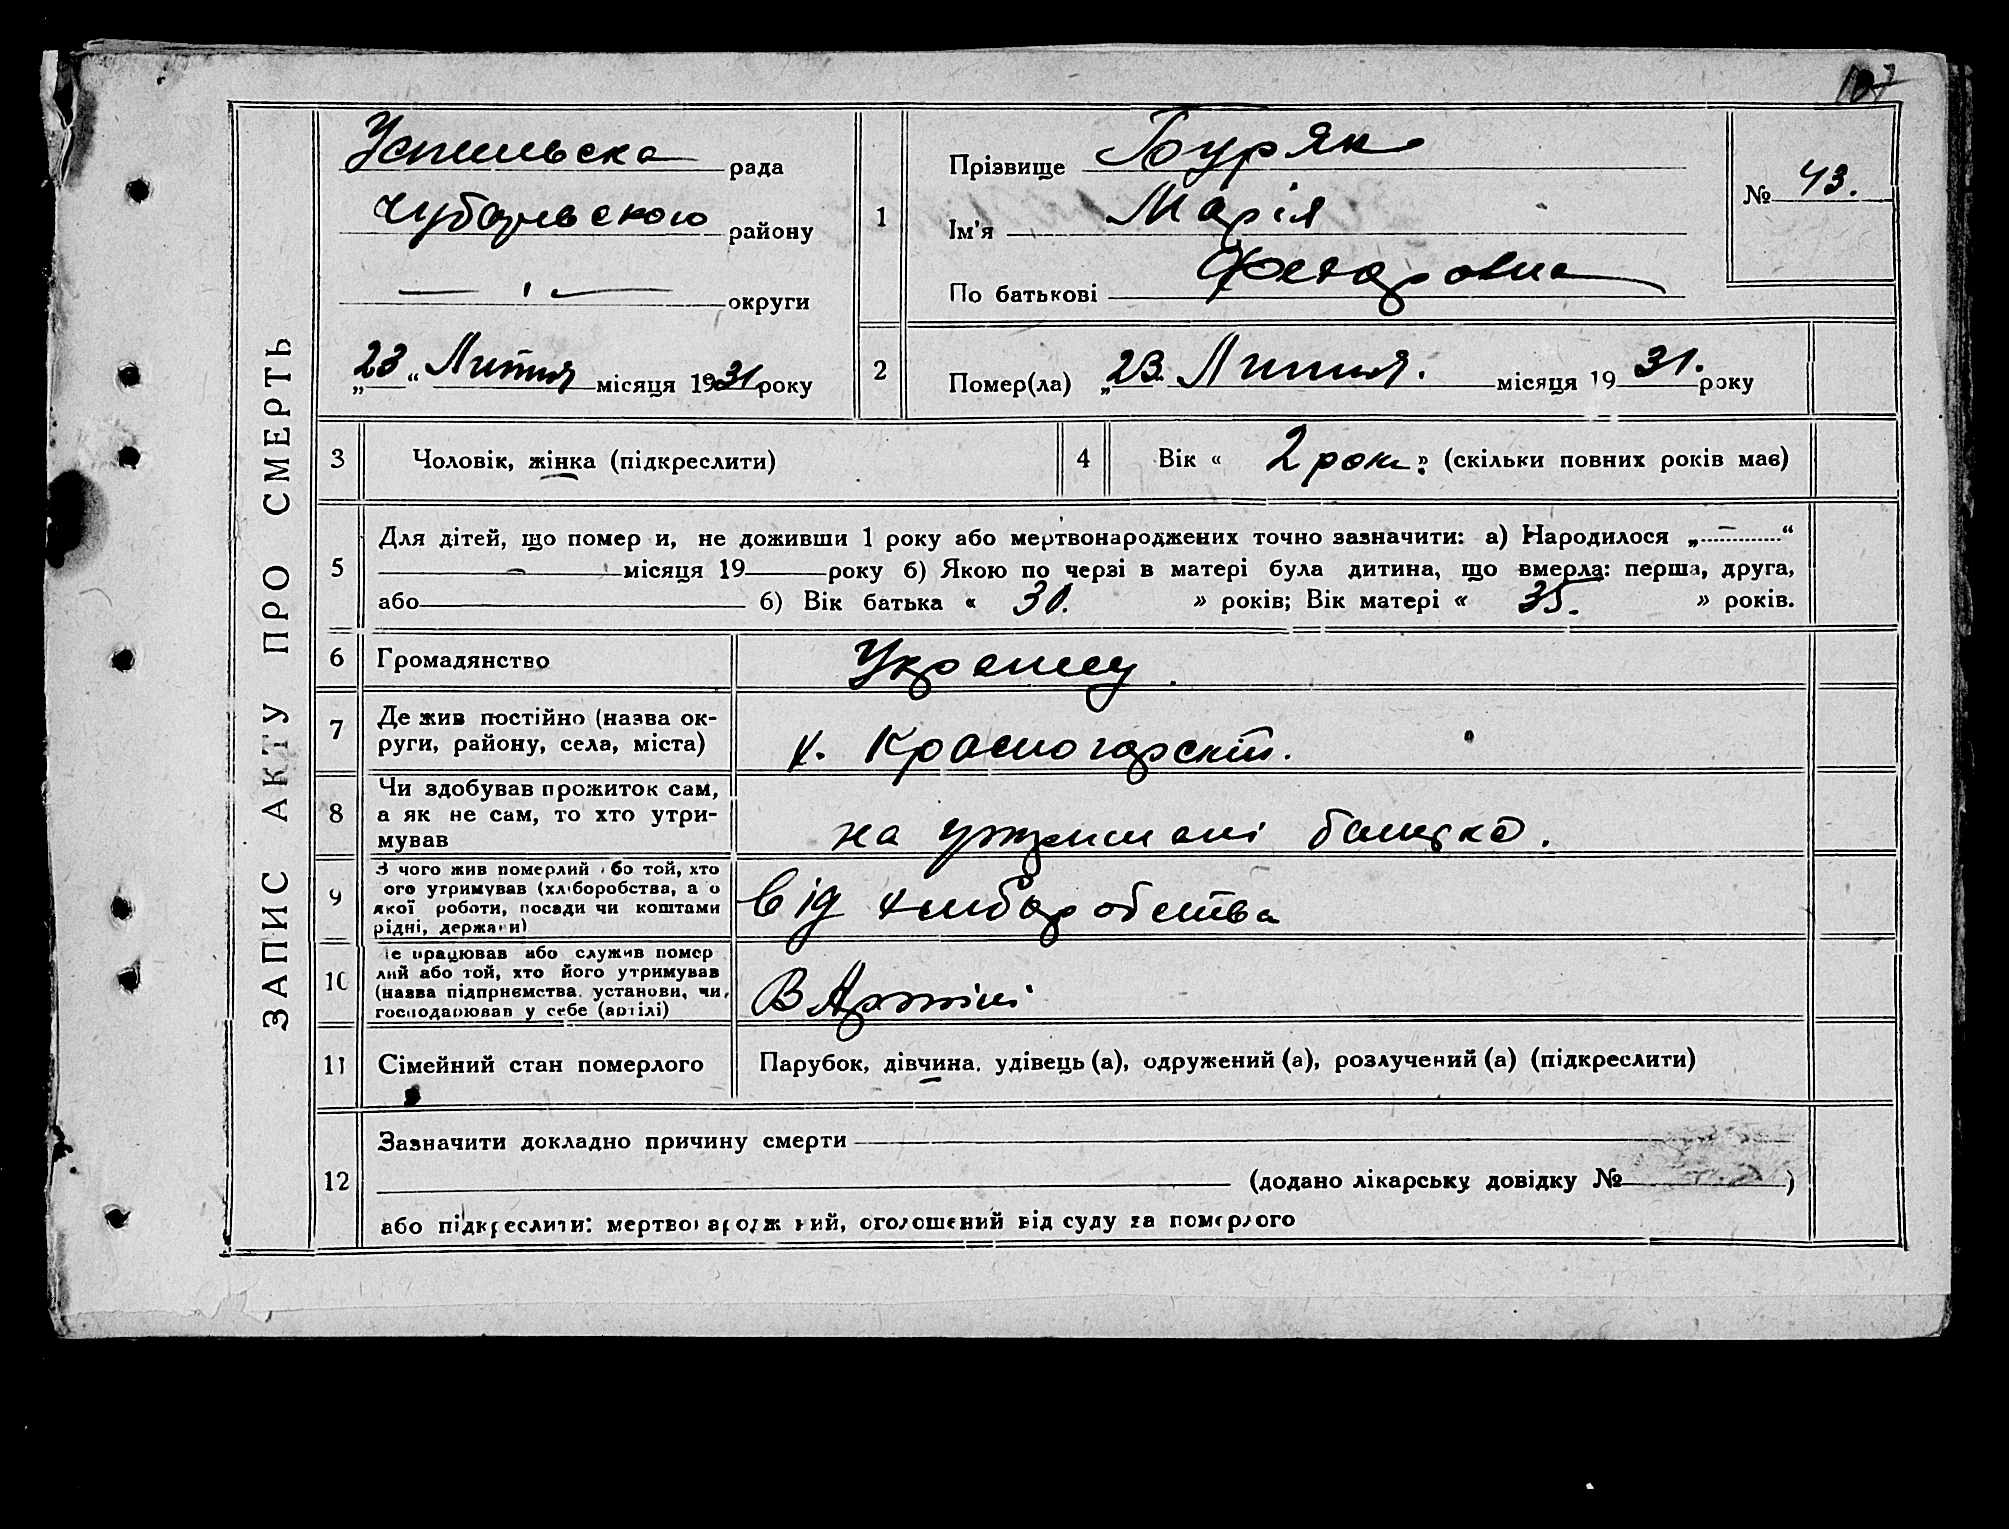 ЗАПИС АКТУ ПРО СМЕРТЬ
рада
району
округи
„23“ місяця 1931 року
1
Прізвище Буряк
Ім'я Марія
По батькові Федоровна
№ 43.
2
Помер(ла) „23. місяця 1931. року
3
Чоловік, жінка (підкреслити)
4
Вік « 2 роки » (скільки повних років має)
5
Для дітей, що помер и, не доживши 1 року або мертвонароджених точно зазначити: а) Народилося „ “
місяця 19 року б) Якою по черзі в матері була дитина, що вмерла: перша, друга,
або б) Вік батька « » років; Вік матері « 35. » років.
6
Громадянство
7
Де жив постійно (назва ок-
руги, району, села, міста)
х. Красногорськ
8
Чи здобував прожиток сам,
а як не сам, то хто утри-
мував
на утримані батька.
9
З чого жив померлий бо той, хто
ого утримував (хліборобства, а о
якої роботи, посади чи коштами
рідні, держави)
Від хліборобства
10
е працював або служив помер
лий або той, хто його утримував
(назва підприємства, установи, чи,
господарював у себе (артілі)
В Артілі
11
Сімейний стан померлого
Парубок, дівчина, удівець (а), одружений (а), розлучений (а) (підкреслити)
12
Зазначити докладно причину смерти
(додано лікарську довідку № )
або підкреслити: мертвонароджений, оголошений від суду за померлого